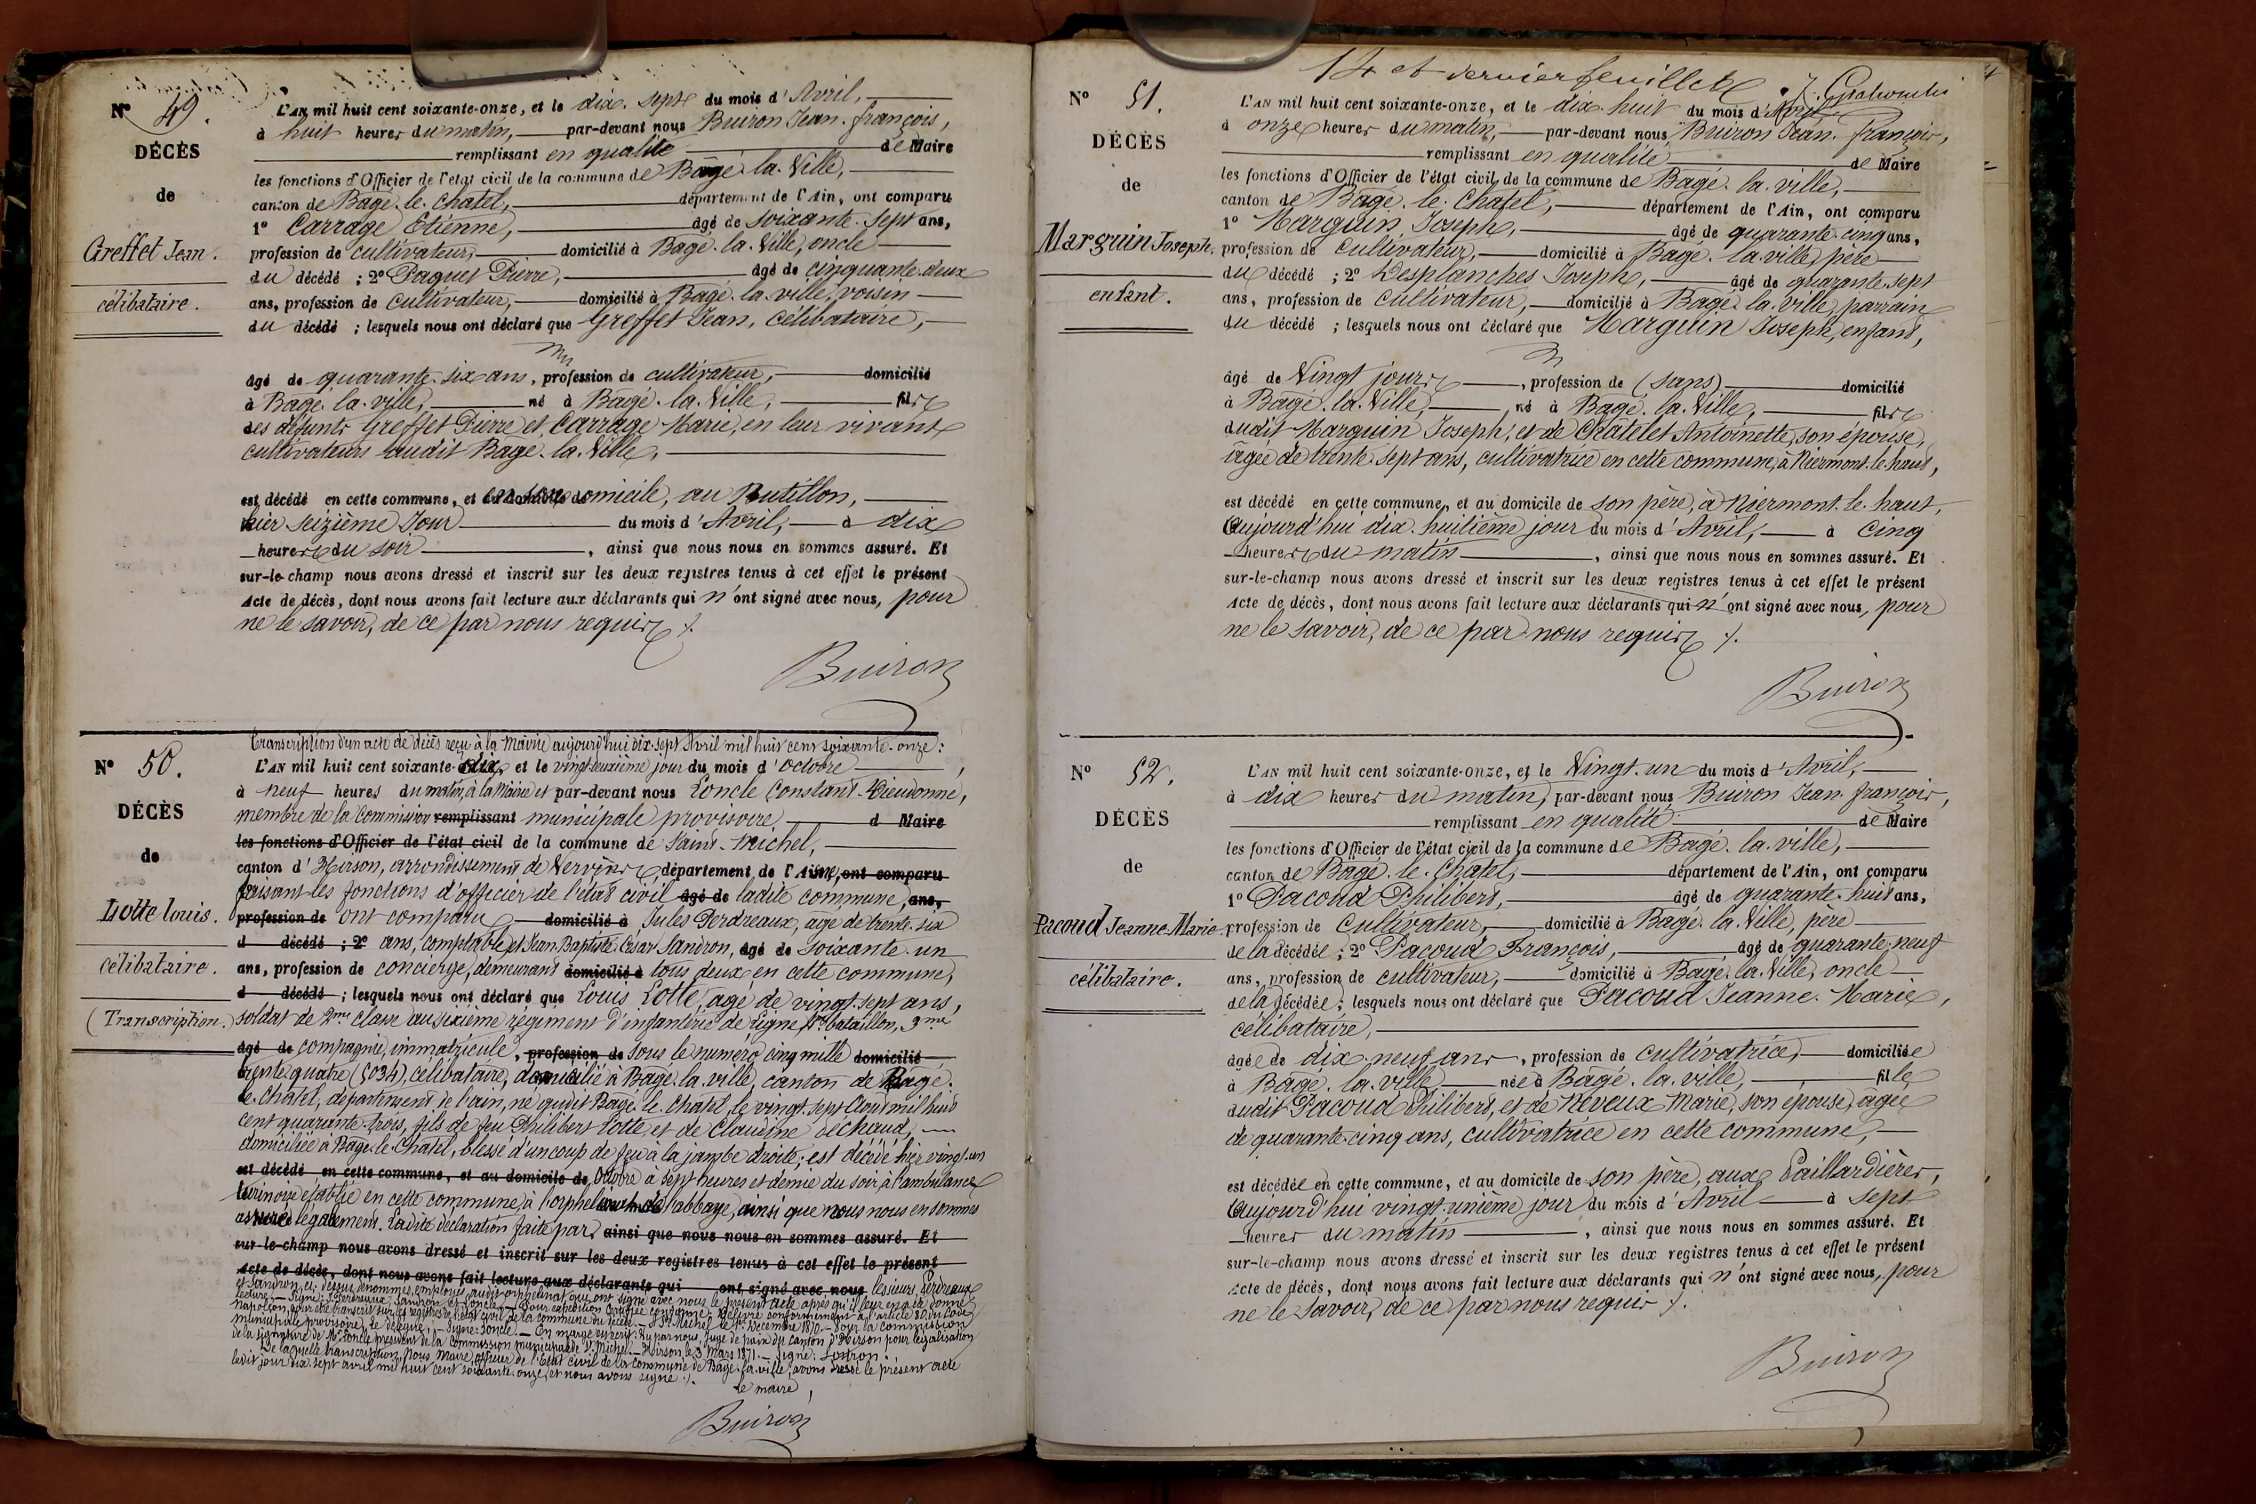 Nº 49.
DÉCÈS
de
Greffet Jean.
célibataire.
L'AN mil huit cent soixante-onze, et le dix-sept du mois d'Avril,
à huit heures du matin, par-devant nous Buiron Jean-françois,
remplissant en qualité de Maire
les fonctions d'Officier de l'état civil de la commune de Bagé-la-Ville,
canton de Bagé-le-Chatel, département de l'Ain, ont comparu
1º Carrage Etienne, agé de soixante-sept ans,
profession de cultivateur, domicilié à Bagé-la-Ville, oncle
du décédé ; 2º Paquet Pierre, agé de cinquante-deux
ans, profession de cultivateur, domicilié à Bagé-la-ville, voisin
du décédé ; lesquels nous ont déclaré que Greffet Jean, célibataire,
âgé de quarante-six ans, profession de cultivateur, domicilié
à Bagé-la-ville, né à Bagé-la-Ville, fils
des défunts Greffet Pierre et Carrage Marie, en leur vivant
cultivateurs audit Bagé-la-Ville,
est décédé en cette commune, et en son domicile, au Rutillon,
hier seizième jour du mois d'Avril, à dix
heures du soir, ainsi que nous nous en sommes assuré. Et
sur-le-champ nous avons dressé et inscrit sur les deux registres tenus à cet effet le présent
Acte de décès, dont nous avons fait lecture aux déclarants qui n'ont signé avec nous, pour
ne le savoir, de ce par nous requis ./.
Buiron
Nº 50.
DÉCÈS
de
Lotte louis.
célibataire.
(Transcription.)
Transcription d'un acte de décès reçu à la Mairie aujourd'hui dix-sept Avril mil huit cent soixante-onze :
L'AN mil huit cent soixante-dix, et le vingt-deuxième jour du mois d'octobre,
à neuf heures du matin, à la Mairie et par-devant nous Loncle Constant-Dieudonné,
membre de la Commission remplissant municipale provisoire d Maire
les fonctions d'Officier de l'état civil de la commune de Saint-Michel,
canton d'Hirson, arrondissement de Vervins, département de l'Aisne, ont comparu
faisant les fonctions d'officier de l'état civil agé de ladite commune, ans,
profession de ont comparu domicilié à Jules Perdreaux, âgé de trente-six
d décédé ; 2º ans, comptable et Jean Baptiste César Sandron, âgé de soixante-un
ans, profession de concierge, demeurant domicilié à tous deux en cette commune,
d décédé ; lesquels nous ont déclaré que Louis Lotte, âgé de vingt-sept ans,
soldat de 2me classe au sixième régiment d'infanterie de ligne, bataillon, 3me
âgé de compagnie, immatriculé, profession de sous le numéro cinq mille domicilié
trente quatre (5034), célibataire, domicilié à Bagé-la-ville, canton de Bagé-
le-Chatel, département de l'ain, né audit Bagé-le-Chatel, le vingt-sept Août mil huit
cent quarante-trois, fils de feu Philibert Lotte, et de Claudine Dechaud,
domiciliée à Bagé-le-Chatel, blessé d'un coup de feu à la jambe droite; est décédé hier vingt-un
est décédé en cette commune, et au domicile de Octobre à sept heures et demie du soir, à l'ambulance
provisoire établie en cette commune, à l'orphelinat de l'abbaye, ainsi que nous nous en sommes
assuré légalement. Ladite déclaration faite par ainsi que nous nous en sommes assuré. Et
sur-le-champ nous avons dressé et inscrit sur les deux registres tenus à cet effet le présent
Acte de décès, dont nous avons fait lecture aux déclarants qui ont signé avec nous les sieurs Perdreaux
et Sandron, ci-dessus dénommés, employés audit orphelinat, qui ont signé avec nous le présent acte après qu'il leur en a été donné
lecture. - Signé: J. Perdreaux, Sandron et Loncle. - Pour expédition certifiée conforme et délivré conformément à l'article 80 du Code
Napoléon, pour être transcrit sur les registres de l'état civil de la commune du décédé. - St Michel, le Décembre 1870. - Pour la commission
municipale provisoire, le délégué, - Signé: Loncle. - En marge est écrit: Vu par nous, Juge de paix du canton d'Hirson pour légalisation
de la signature de Mr Loncle président de la Commission municipale de St Michel. - Hirson, le 3 Mars 1871. - Signé:
De laquelle transcription, Nous Maire, officier de l'Etat civil de la commune de Bagé-la-ville, avons dressé le présent acte
ledit jour dix-sept avril mil huit cent soixante-onze, et nous avons signé ./.
le maire,
Buiron
14 et dernier feuillet
Nº 51.
DÉCÈS
de
Marguin Joseph.
enfant.
L'AN mil huit cent soixante-onze, et le dix-huit du mois d'Avril
à onze heures du matin, par-devant nous Buiron Jean-françois,
remplissant en qualité de Maire
les fonctions d'Officier de l'état civil de la commune de Bagé-la-ville,
canton de Bagé-le-Chatel, département de l'Ain, ont comparu
1º Marguin Joseph, agé de quarante-cinq ans,
profession de cultivateur, domicilié à Bagé-la-ville, père
du décédé ; 2º Desplanches Joseph, âgé de quarante-sept
ans, profession de cultivateur, domicilié à Bagé-la-ville, parrain
du décédé ; lesquels nous ont déclaré que Marguin Joseph, enfant,
âgé de Vingt jours, profession de (sans) domicilié
à Bagé-la-Ville, né à Bagé-la-Ville, fils
dudit Marguin Joseph, et de Chatelet Antoinette, son épouse,
âgée de trente-sept ans, cultivatrice en cette commune, à Niermont-le-haut,
est décédé en cette commune, et au domicile de son père, à Niermont-le-haut,
Aujourd'hui dix-huitième jour du mois d'Avril, à cinq
heures du matin, ainsi que nous nous en sommes assuré. Et
sur-le-champ nous avons dressé et inscrit sur les deux registres tenus à cet effet le présent
Acte de décès, dont nous avons fait lecture aux déclarants qui n'ont signé avec nous, pour
ne le savoir, de ce par nous requis ./.
Buiron
Nº 52.
DÉCÈS
de
Pacoud Jeanne Marie
célibataire.
L'AN mil huit cent soixante-onze, et le Vingt-un du mois d'Avril,
à dix heures du matin, par-devant nous Buiron Jean-françois,
remplissant en qualité de Maire
les fonctions d'Officier de l'état civil de la commune de Bagé-la-ville,
canton de Bagé-le-Chatel, département de l'Ain, ont comparu
1º Pacoud Philibert, âgé de quarante-huit ans,
profession de cultivateur, domicilié à Bagé-la-Ville, père
de la décédée ; 2º Pacoud François, âgé de quarante-neuf
ans, profession de cultivateur, domicilié à Bagé-la-Ville, oncle
de la décédée ; lesquels nous ont déclaré que Pacoud Jeanne-Marie,
célibataire,
âgée de dix-neuf ans, profession de cultivatrice, domiciliée
à Bagé-la-ville née à Bagé-la-ville, fille
dudit Pacoud Philibert, et de Neveux Marie, son épouse, âgée
de quarante-cinq ans, cultivatrice en cette commune,
est décédée en cette commune, et au domicile de son père, aux Paillardières,
Aujourd'hui vingt-unième jour du mois d'Avril à sept
heures du matin, ainsi que nous nous en sommes assuré. Et
sur-le-champ nous avons dressé et inscrit sur les deux registres tenus à cet effet le présent
Acte de décès, dont nous avons fait lecture aux déclarants qui n'ont signé avec nous, pour
ne le savoir, de ce par nous requis ./.
Buiron